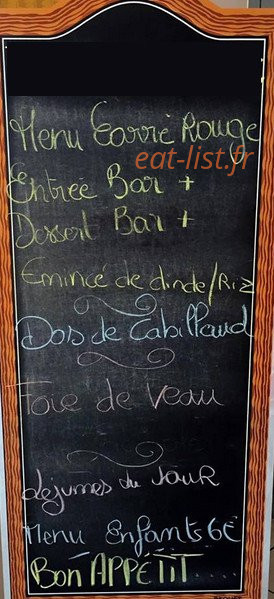 Menu Carré Rouge
eat-list.fr
Entrée Bar +
Dessert Bar +
Emincé de dinde/Riz
Dos de Cabillaud
Foie de Veau
Légumes du Jour
Menu Enfants 6€
Bon APPÉTIT....